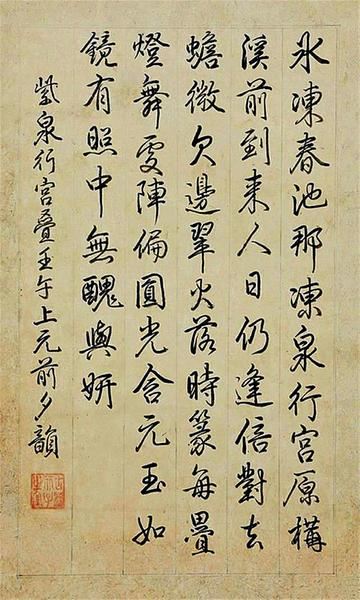 氷凍春池那凍泉行宮原構
溪前到来人日仍逢倍對去
蟾微欠邊翠火落時篆每疊
燈舞處陣偏圓光含元玉如
鏡有照中無醜與妍
紫泉行宮疊壬午上元前夕韻